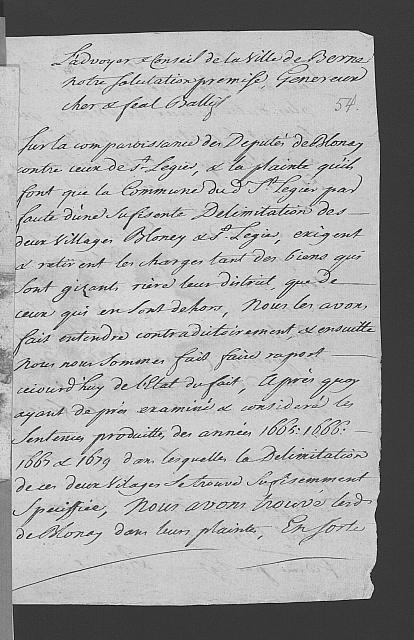 Ladvoyer & Conseil de la Ville de Berne
notre salutation premise, Genereux
cher & feal Ballif
54.
Sur la comparoissance des Deputés de Blonay
contre ceux de St. Legier, & la plainte qu'ils
font que la Commune du d. St. Legier par
faute d'une sufisente Delimitation des
deux Villages Bloney & St. Legier, exigent
& retirent les charges tant des biens qui
sont gizants riere leur district, que de
ceux qui en sont dehors, Nous les avons
fait entendre contradictoirement, & ensuitte
Nous nous sommes fait faire raport
cejourd'huy de l'Etat du fait. Après quoy
ayant de près examiné & consideré les
Sentences produittes des années 1665: 1666:
1667 & 1679 dans lesquelles la Delimitation
de ces deux Vilages se trouve sufisemment
Speciffiée, Nous avons trouvé lesd.
de Blonay dans leurs plaintes, En sorte